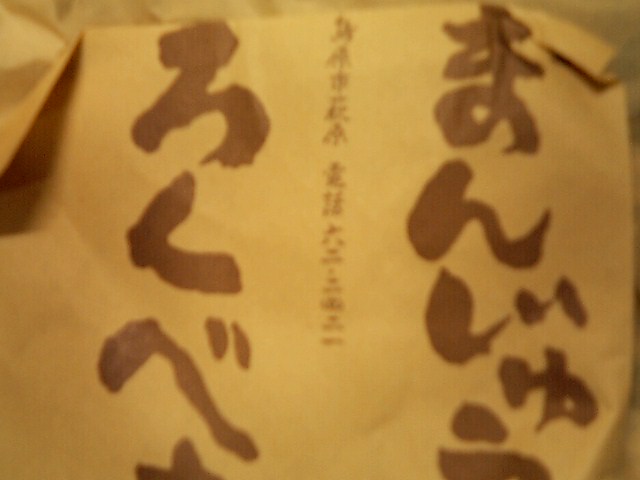 まんじゅう
島原市萩原 電話 六二・二四二一
ろくべ